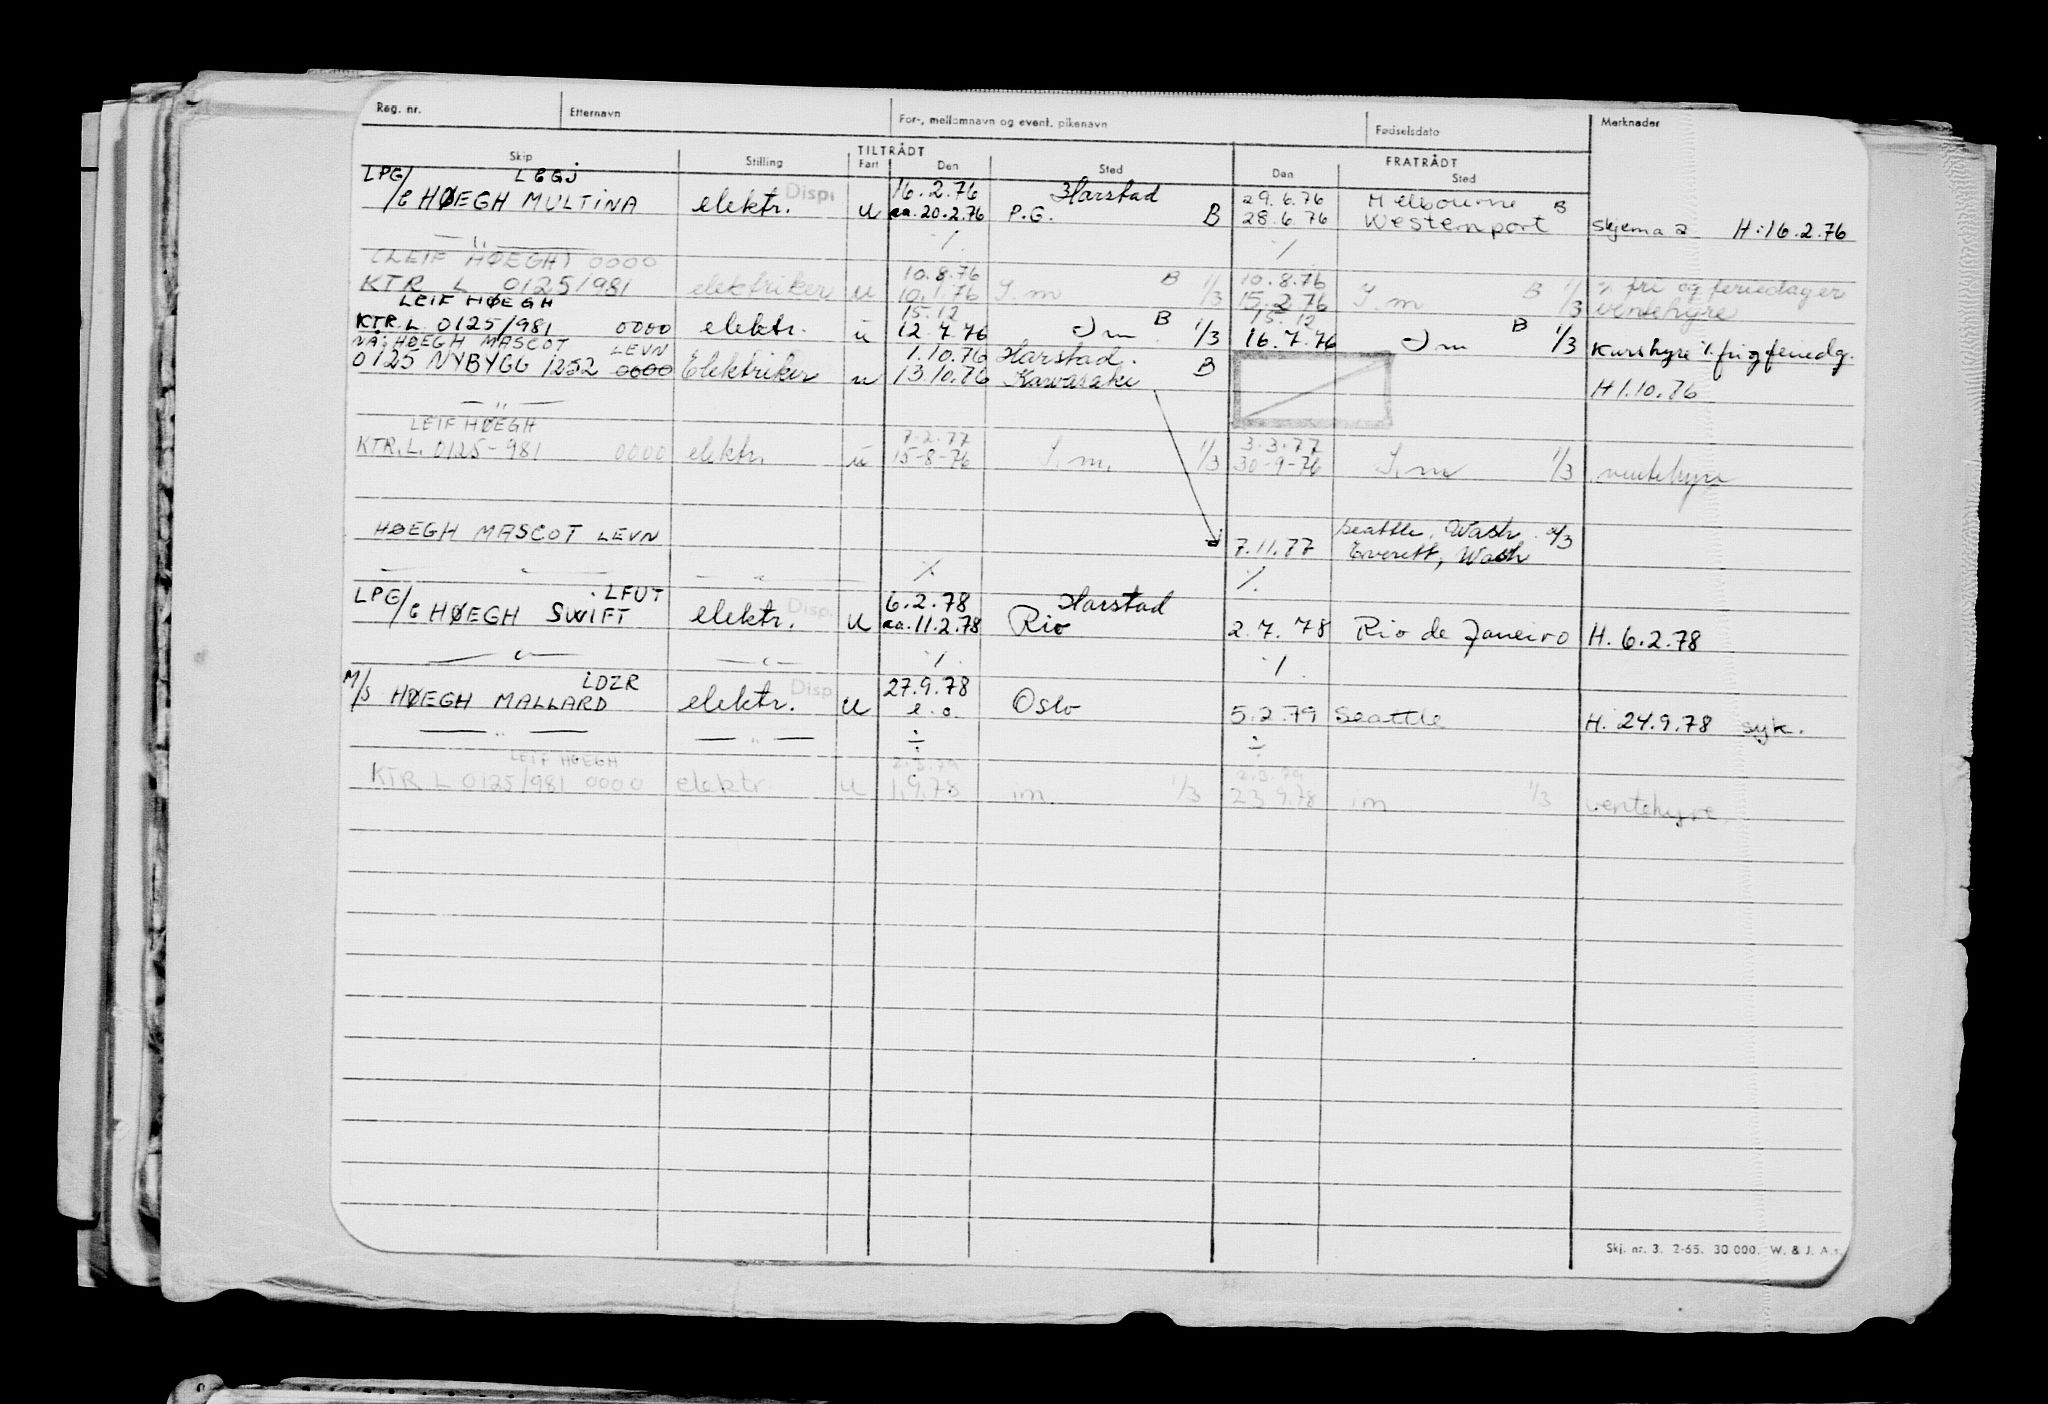 Reg. nr. Etternavn For-, mellomnavn og event. pikenavn Fødselsdato Merknader
TILTRÅDT FRATRÅDT
Skip Stilling Fart Den Sted Den Sted
LPG/ LCGJ Dispi 16.2.76 Harstad 29.6.76 Melbourne B
/C HØEGH MULTINA elektr. u ca. 20.2.76 P.G. B 28.6.76 Westernport skjema 2 H:16.2.76
— " — ./. ./.
(LEIF HØEGH) 0000 10.8.76 B 1/3 10.8.76 B 1/3 ./. fri og feriedager
KTR L 0125/981 elektriker u 10.1.76 I.m 1/3 15.2.76 I.m 1/3 ventehyre
LEIF HØEGH 15.12 B 15.12 B
KTR. L. 0125/981 0000 elektr. u 12.7.76 I m 1/3 16.7.76 I m 1/3 Kurshyre ./. fri og feriedg.
NÅ: HØEGH MASCOT LEVN 1.10.76 Harstad.
0125 NYBYGG 1252 0000 Elektriker u 13.10.76 Kawasaki B H 1.10.76
— " —
LEIF HØEGH 7.2.77 3.3.77
KTR. L. 0125-981 0000 elektr. u 15-8-76 I.m. 1/3 30-9-76 I.m 1/3 ventehyre
Seattle, Wash
HØEGH MASCOT LEVN 7.11.77 Everett, Wash
— " — — " — ./. ./.
LPG/ LFUT Disp. 6.2.78 Harstad
/C HØEGH SWIFT elektr. u ca. 11.2.78 Rio 2.7.78 Rio de Janeiro H. 6.2.78
— " — — " — ./. ./.
M/S LDZR Disp 27.9.78
HØEGH MALLARD elektr. u e.o. Oslo 5.2.79 Seattle H. 24.9.78 syk.
— " — — " — ÷ ÷
LEIF HØEGH 2.3.79 2.3.79
KTR L 0125/981 0000 elektr. u 1.9.78 im 1/3 23.9.78 im 1/3 ventehyre.
Skj. nr. 3. 2-65. 30 000. W. & J. A.s.